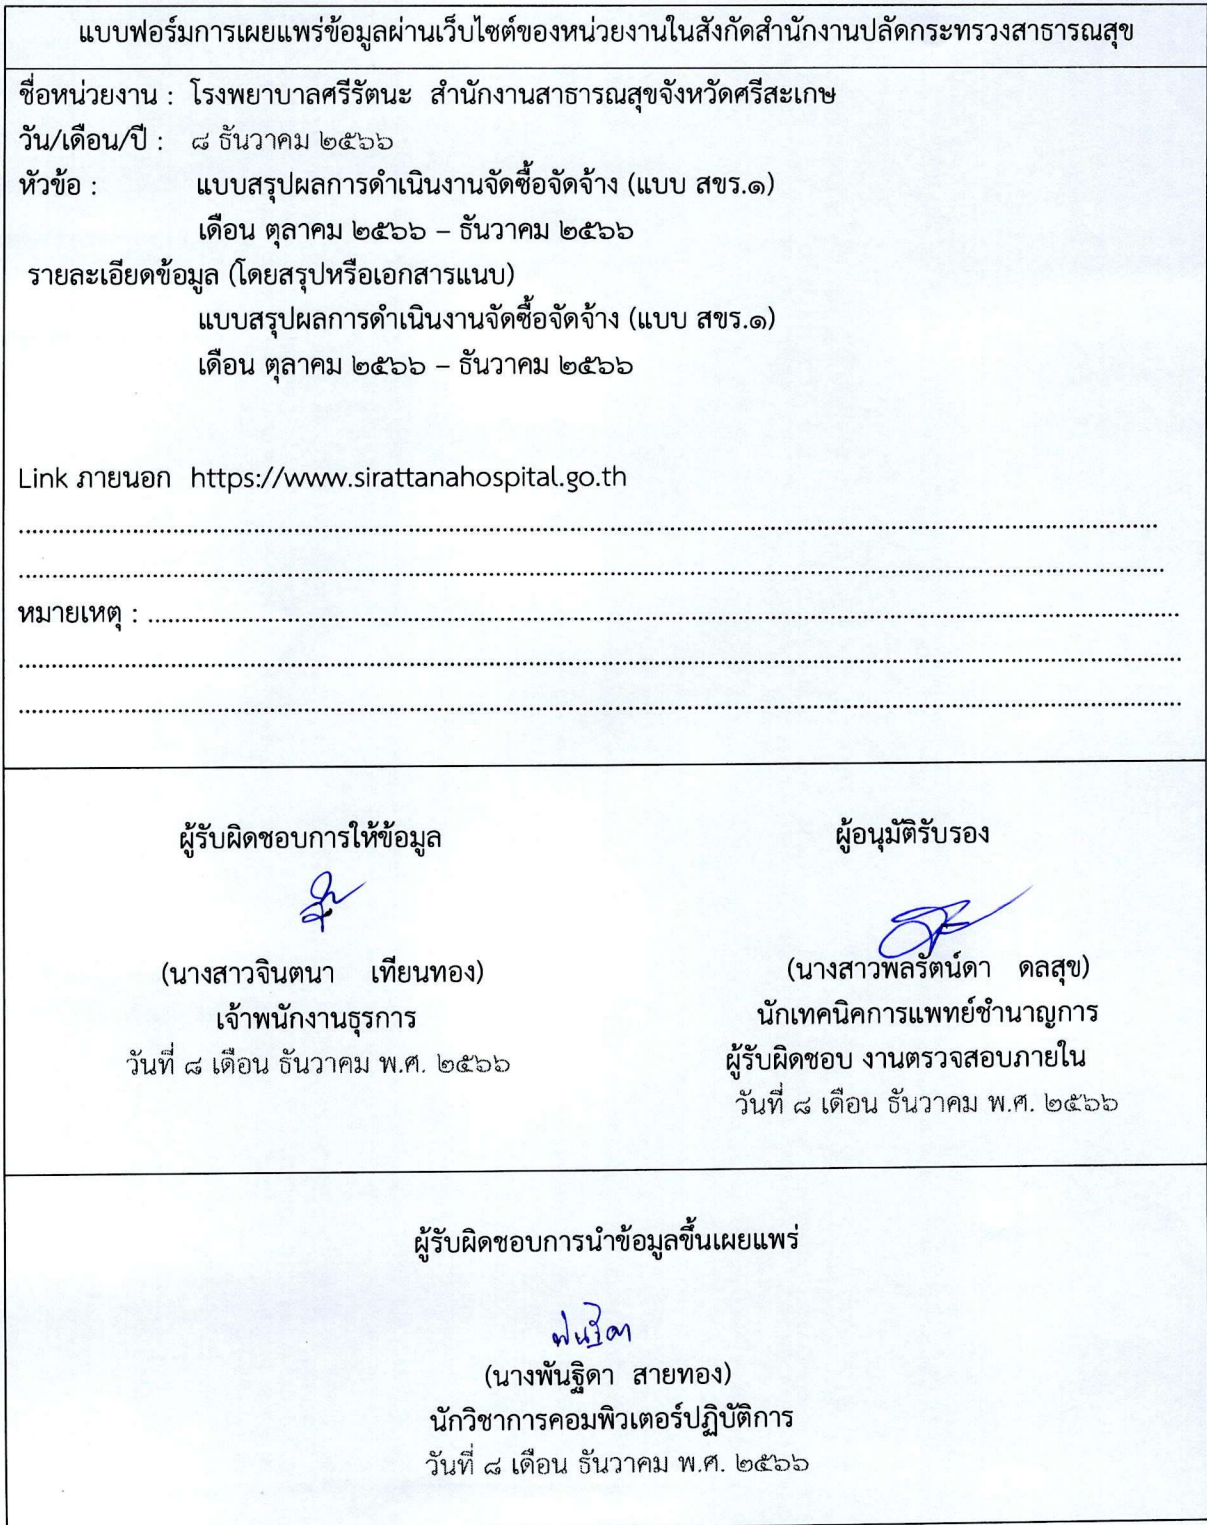 แบบฟอร์มการเผยแพร่ข้อมูลผ่านเว็บไซต์ของหน่วยงานในสังกัดสำนักงานปลัดกระทรวงสาธารณสุข
ชื่อหน่วยงาน : โรงพยาบาลศรีรัตนะ สำนักงานสาธารณสุขจังหวัดศรีสะเกษ
วัน/เดือน/ปี : ๘ ธันวาคม ๒๕๖๖
หัวข้อ : แบบสรุปผลการดำเนินงานจัดซื้อจัดจ้าง (แบบ สขร.๑)
เดือน ตุลาคม ๒๕๖๖ – ธันวาคม ๒๕๖๖
รายละเอียดข้อมูล (โดยสรุปหรือเอกสารแนบ)
แบบสรุปผลการดำเนินงานจัดซื้อจัดจ้าง (แบบ สขร.๑)
เดือน ตุลาคม ๒๕๖๖ – ธันวาคม ๒๕๖๖
Link ภายนอก https://www.sirattanahospital.go.th
หมายเหตุ :
ผู้รับผิดชอบการให้ข้อมูล
(นางสาวจินตนา เทียนทอง)
เจ้าพนักงานธุรการ
วันที่ ๘ เดือน ธันวาคม พ.ศ. ๒๕๖๖
ผู้อนุมัติรับรอง
(นางสาวพลรัตน์ดา ดลสุข)
นักเทคนิคการแพทย์ชำนาญการ
ผู้รับผิดชอบ งานตรวจสอบภายใน
วันที่ ๘ เดือน ธันวาคม พ.ศ. ๒๕๖๖
ผู้รับผิดชอบการนำข้อมูลขึ้นเผยแพร่
พันธิดา
(นางพันฐิดา สายทอง)
นักวิชาการคอมพิวเตอร์ปฏิบัติการ
วันที่ ๘ เดือน ธันวาคม พ.ศ. ๒๕๖๖